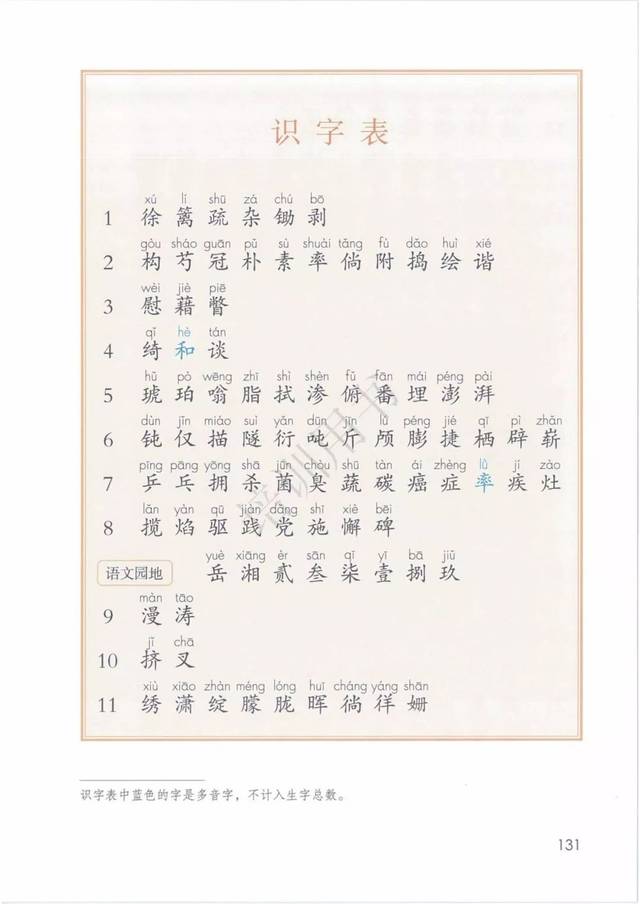 识字表
xú lí shū zá chú bō
1 徐 篱 疏 杂 锄 剥
gòu sháo guān pǔ sù shuài tǎng fù dǎo huì xié
2 构 芍 冠 朴 素 率 倘 附 捣 绘 谐
wèi jiè piē
3 慰 藉 瞥
qǐ hè tán
4 绮 和 谈
hǔ pò wēng zhī shì shèn fǔ fān mái péng pài
5 琥 珀 嗡 脂 拭 渗 俯 番 埋 澎 湃
dùn jǐn miáo suì yǎn dūn jīn lú péng jié qī pì zhǎn
6 钝 仅 描 隧 衍 吨 斤 颅 膨 捷 栖 辟 崭
pīng pāng yōng shā jūn chòu shū tàn ái zhèng lǜ jí zào
7 乒 乓 拥 杀 菌 臭 蔬 碳 癌 症 率 疾 灶
lǎn yàn qū jiàn dǎng shī xiè bēi
8 揽 焰 驱 践 党 施 懈 碑
yuè xiāng èr sān qī yī bā jiǔ
语文园地 岳 湘 贰 叁 柒 壹 捌 玖
màn tāo
9 漫 涛
jǐ chā
10 挤 叉
xiù xiāo zhàn méng lóng huī cháng yáng shān
11 绣 潇 绽 朦 胧 晖 徜 徉 姗
识字表中蓝色的字是多音字，不计入生字总数。
131
培训用书